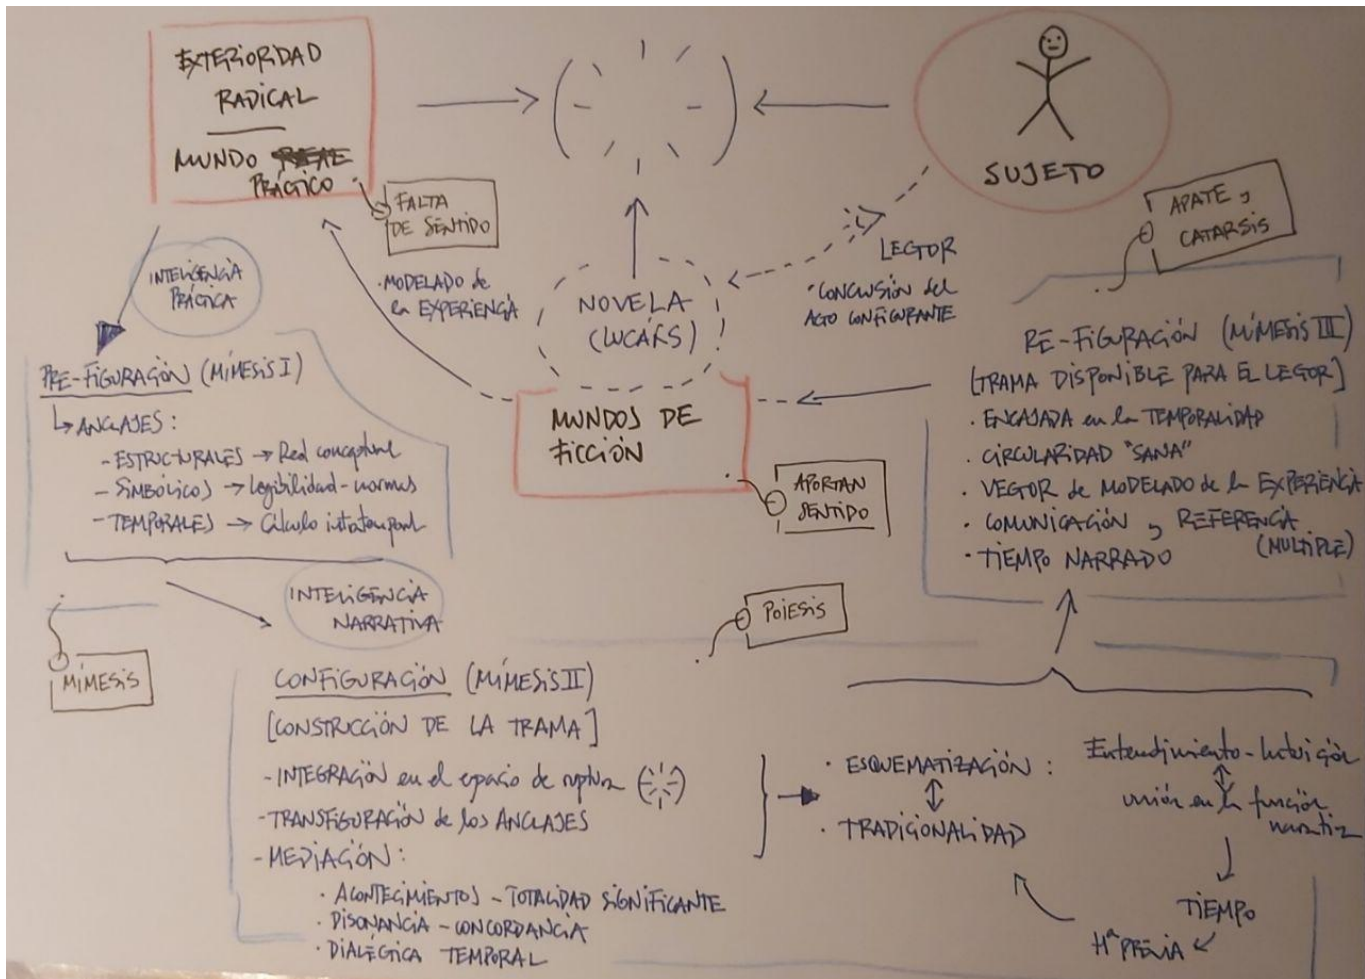 EXTERIORIDAD
RADICAL
MUNDO
PRÁCTICO
FALTA
DE SENTIDO
SUJETO
APATE y
CATARSIS
INTELIGENCIA
PRÁCTICA
·MODELADO de
la EXPERIENCIA
NOVELA
(LUCÁKS)
LECTOR
·CONCLUSIÓN del
ACTO CONFIGURANTE
PRE-FIGURACIÓN (MÍMESIS I)
↳ ANCLAJES:
-ESTRUCTURALES → Red conceptual
-SIMBÓLICOS → legibilidad-normas
-TEMPORALES → Cálculo intratemporal
MUNDOS DE
FICCIÓN
APORTAN
SENTIDO
RE-FIGURACIÓN (MÍMESIS III)
[TRAMA DISPONIBLE PARA EL LECTOR]
· ENCAJADA en la TEMPORALIDAD
· CIRCULARIDAD "SANA"
· VECTOR de MODELADO de la EXPERIENCIA
· COMUNICACIÓN y REFERENCIA
(MÚLTIPLE)
· TIEMPO NARRADO
INTELIGENCIA
NARRATIVA
MÍMESIS
POIESIS
CONFIGURACIÓN (MÍMESIS II)
[CONSTRUCCIÓN DE LA TRAMA]
-INTEGRACIÓN en el espacio de ruptura
-TRANSFIGURACIÓN de los ANCLAJES
-MEDIACIÓN:
· ACONTECIMIENTOS - TOTALIDAD SIGNIFICANTE
· DISONANCIA - CONCORDANCIA
· DIALÉCTICA TEMPORAL
· ESQUEMATIZACIÓN:
· TRADICIONALIDAD
Entendimiento-Intuición
unión en la función
narrativa
TIEMPO
Hª PREVIA